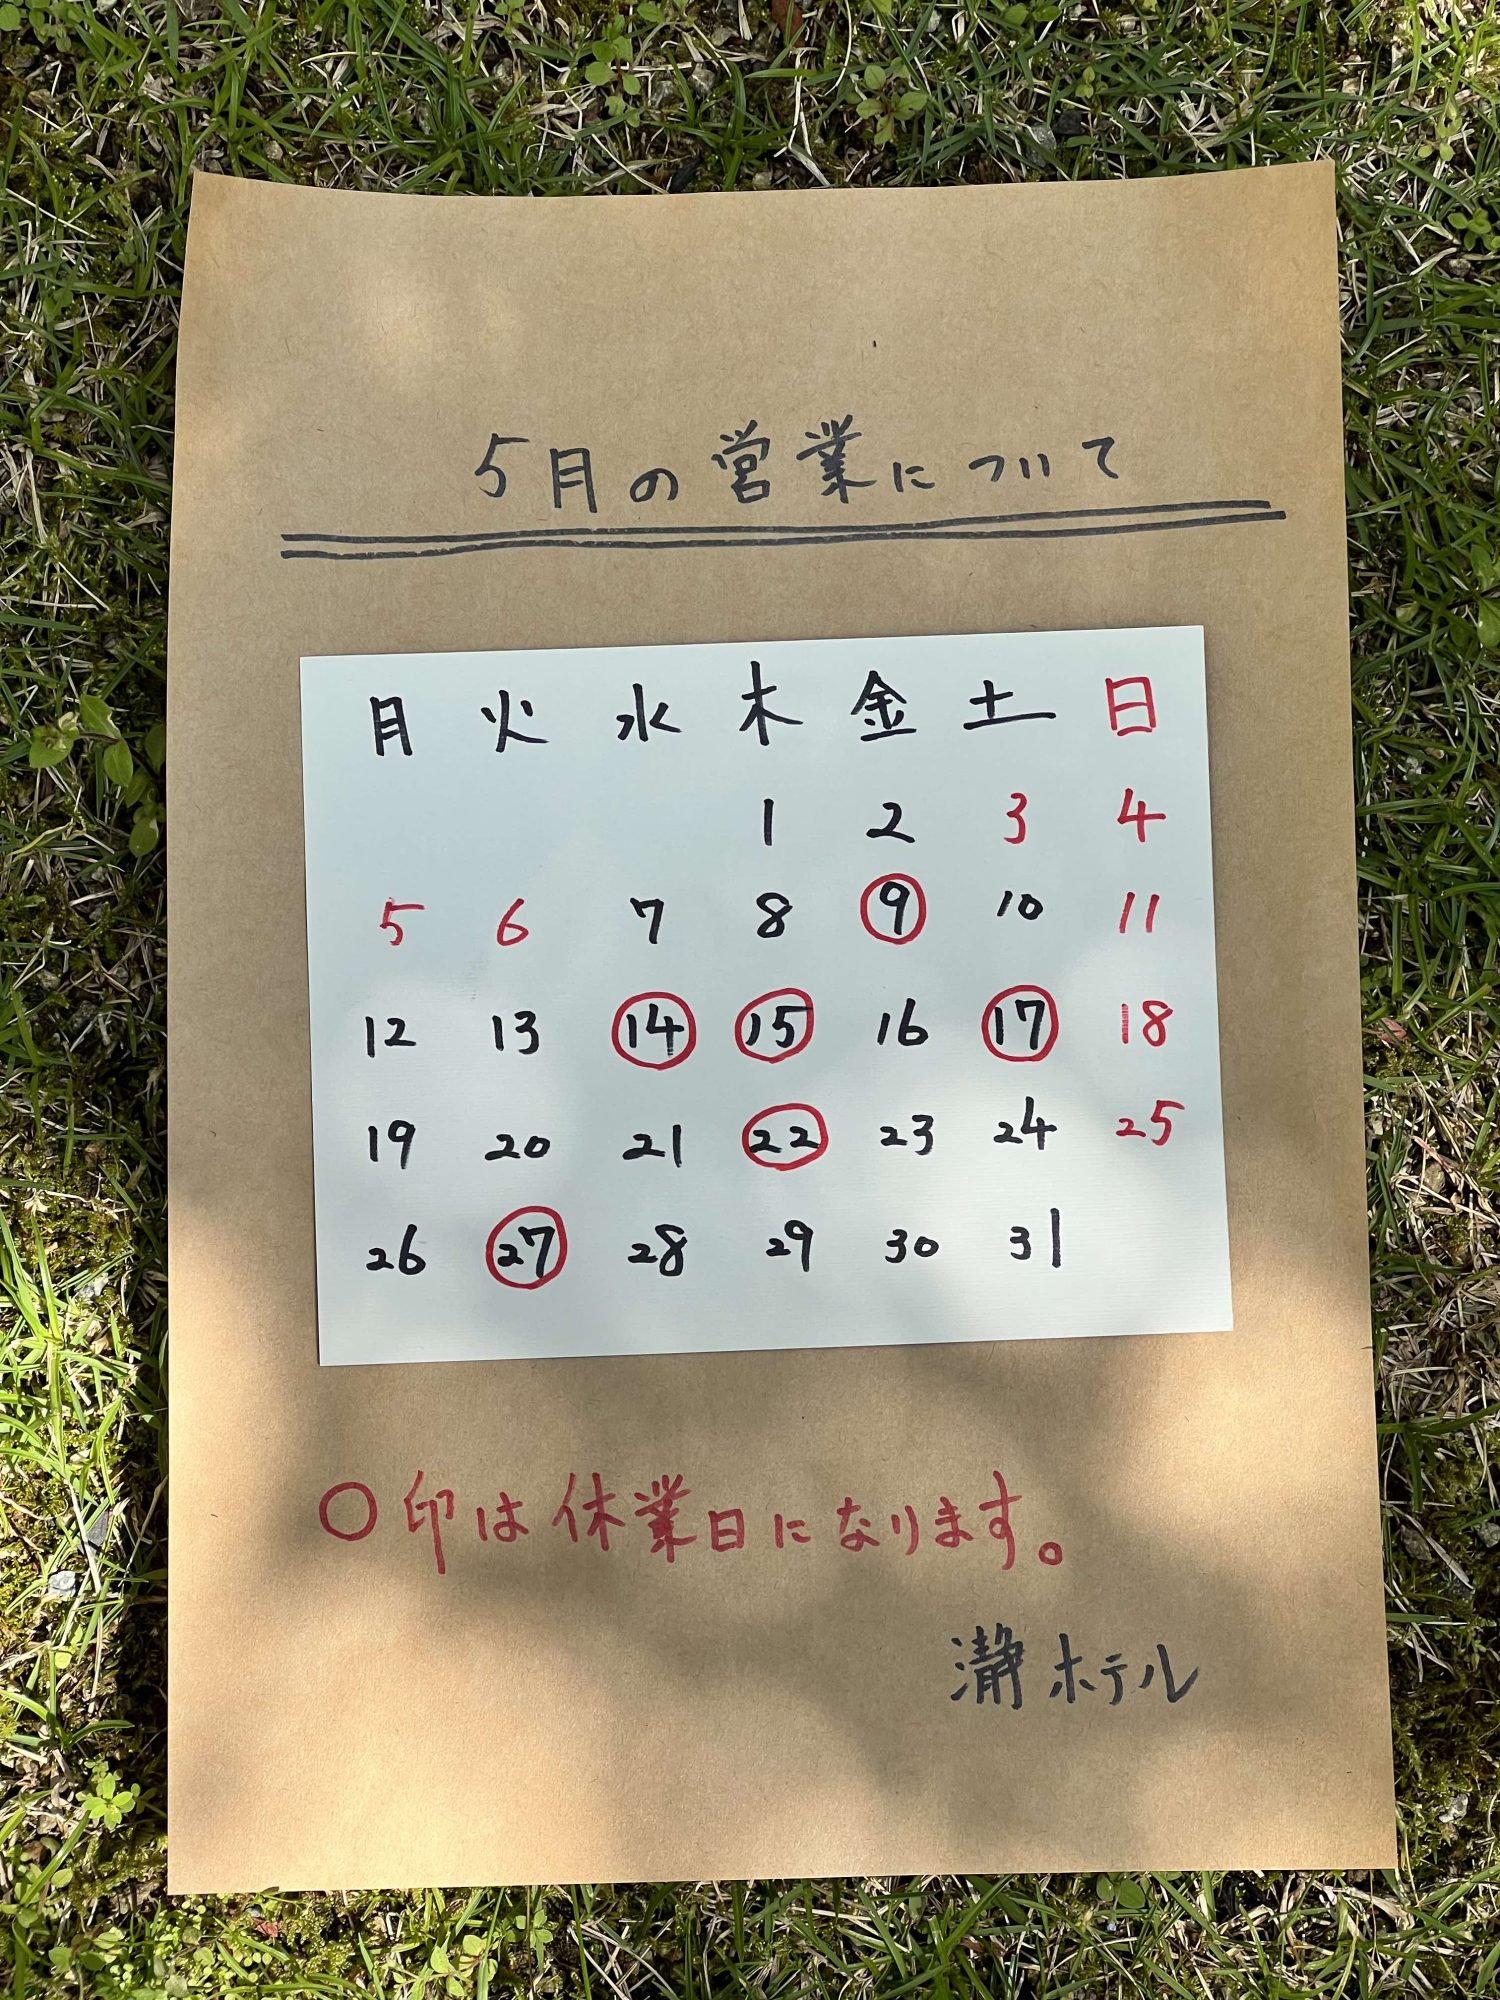 5月の営業について
月 火 水 木 金 土 日
1 2 3 4
5 6 7 8 9 10 11
12 13 14 15 16 17 18
19 20 21 22 23 24 25
26 27 28 29 30 31
〇印は休業日になります。
瀞ホテル